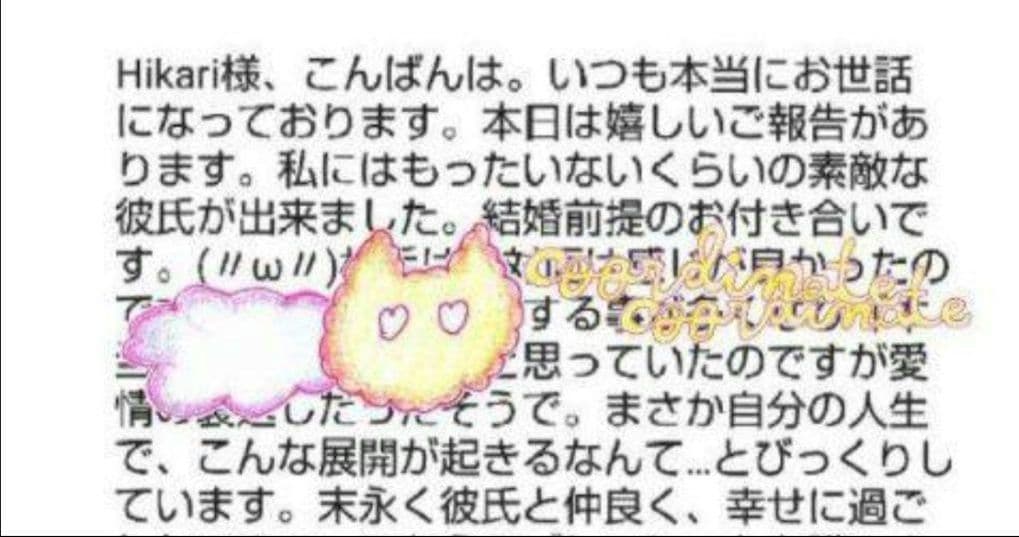 Hikari様、こんばんは。いつも本当にお世話
になっております。本日は嬉しいご報告があ
ります。私にはもったいないくらいの素敵な
彼氏が出来ました。結婚前提のお付き合いで
す。(〃ω〃)
coordinate
coordinate
する
思っていたのですが愛
情の裏返しだったそうで。まさか自分の人生
で、こんな展開が起きるなんて…とびっくりし
ています。末永く彼氏と仲良く、幸せに過ご